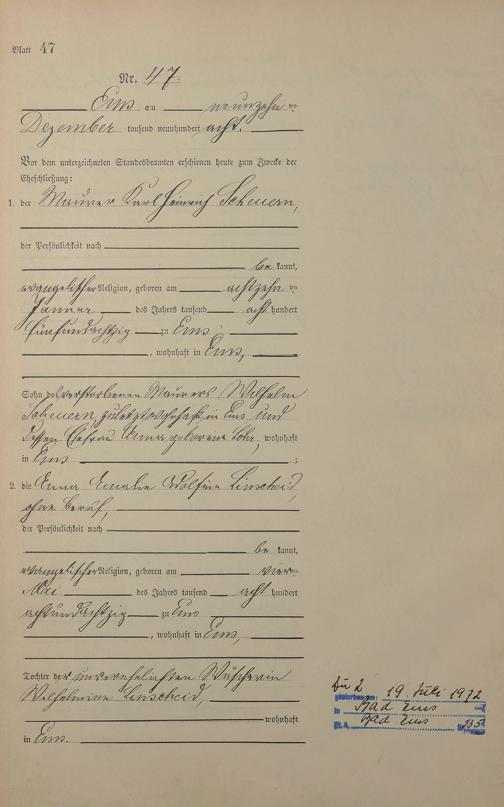 Blatt 47
Nr. 47.
Ems am neunzehn ten
Dezember tausend neunhundert acht.
Vor dem unterzeichneten Standesbeamten erschienen heute zum Zwecke der
Eheschließung:
1. der Maurer Karl Heinrich Scheuern,
der Persönlichkeit nach
be kannt,
evangelischer Religion, geboren am achtzehn ten
Januar des Jahres tausend acht hundert
fünfundachtzig zu Ems
, wohnhaft in Ems,
Sohn des verstorbenen Maurers Wilhelm
Scheuern, zuletzt wohnhaft in Ems und
dessen Ehefrau Anna geborene Lohr, wohnhaft
in Ems ;
2. die Anna Emalie Adolfine Linscheid,
ohne Beruf,
der Persönlichkeit nach
be kannt,
evangelischer Religion, geboren am vier ten
Mai des Jahres tausend acht hundert
achtundachtzig zu Ems
, wohnhaft in Ems,
Tochter der unverehelichten Wäscherin
Wilhelmine Linscheid,
wohnhaft
in Ems.
Zu 2
gestorben am: 19. Juli 1972
in Bad Ems
St. A. Bad Ems Nr. 135